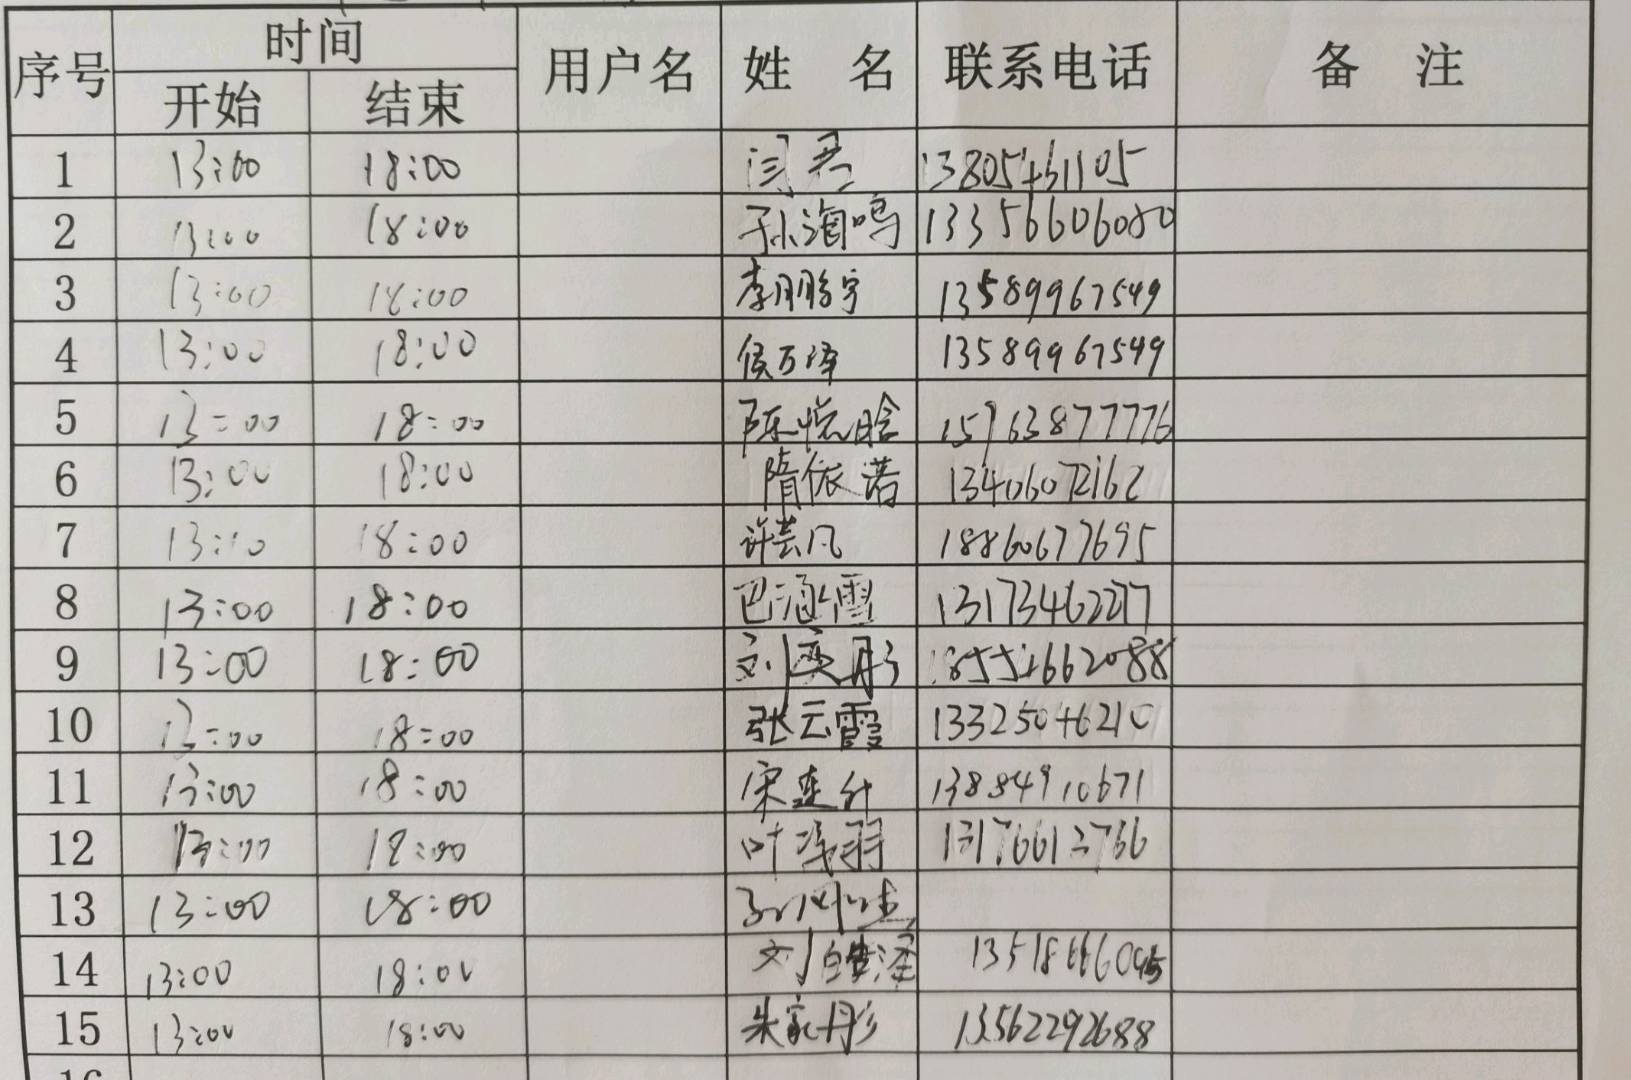 序号 时间 用户名 姓 名 联系电话 备 注
开始 结束
1 13:00 18:00 闫君 13805461105
2 13:00 18:00 孙海鸣 13356606080
3 13:00 18:00 李鹏宇 13589967549
4 13:00 18:00 侯万泽 13589967549
5 13:00 18:00 陈悦晗 15763877776
6 13:00 18:00 隋依诺 13406072162
7 13:00 18:00 许芸凡 18860677695
8 13:00 18:00 巴涵雪 13173462277
9 13:00 18:00 刘奕彤 18554662088
10 13:00 18:00 张云霞 13325046210
11 13:00 18:00 宋连升 13884910671
12 13:00 18:00 叶 13176612766
13 13:00 18:00
14 13:00 18:00 刘皓泽
15 13:00 18:00 朱家彤 13562292688